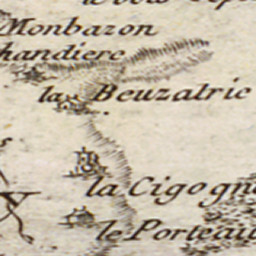 Monbazon
handiere
la Beuzatrie
la Cigogn
le Porteau